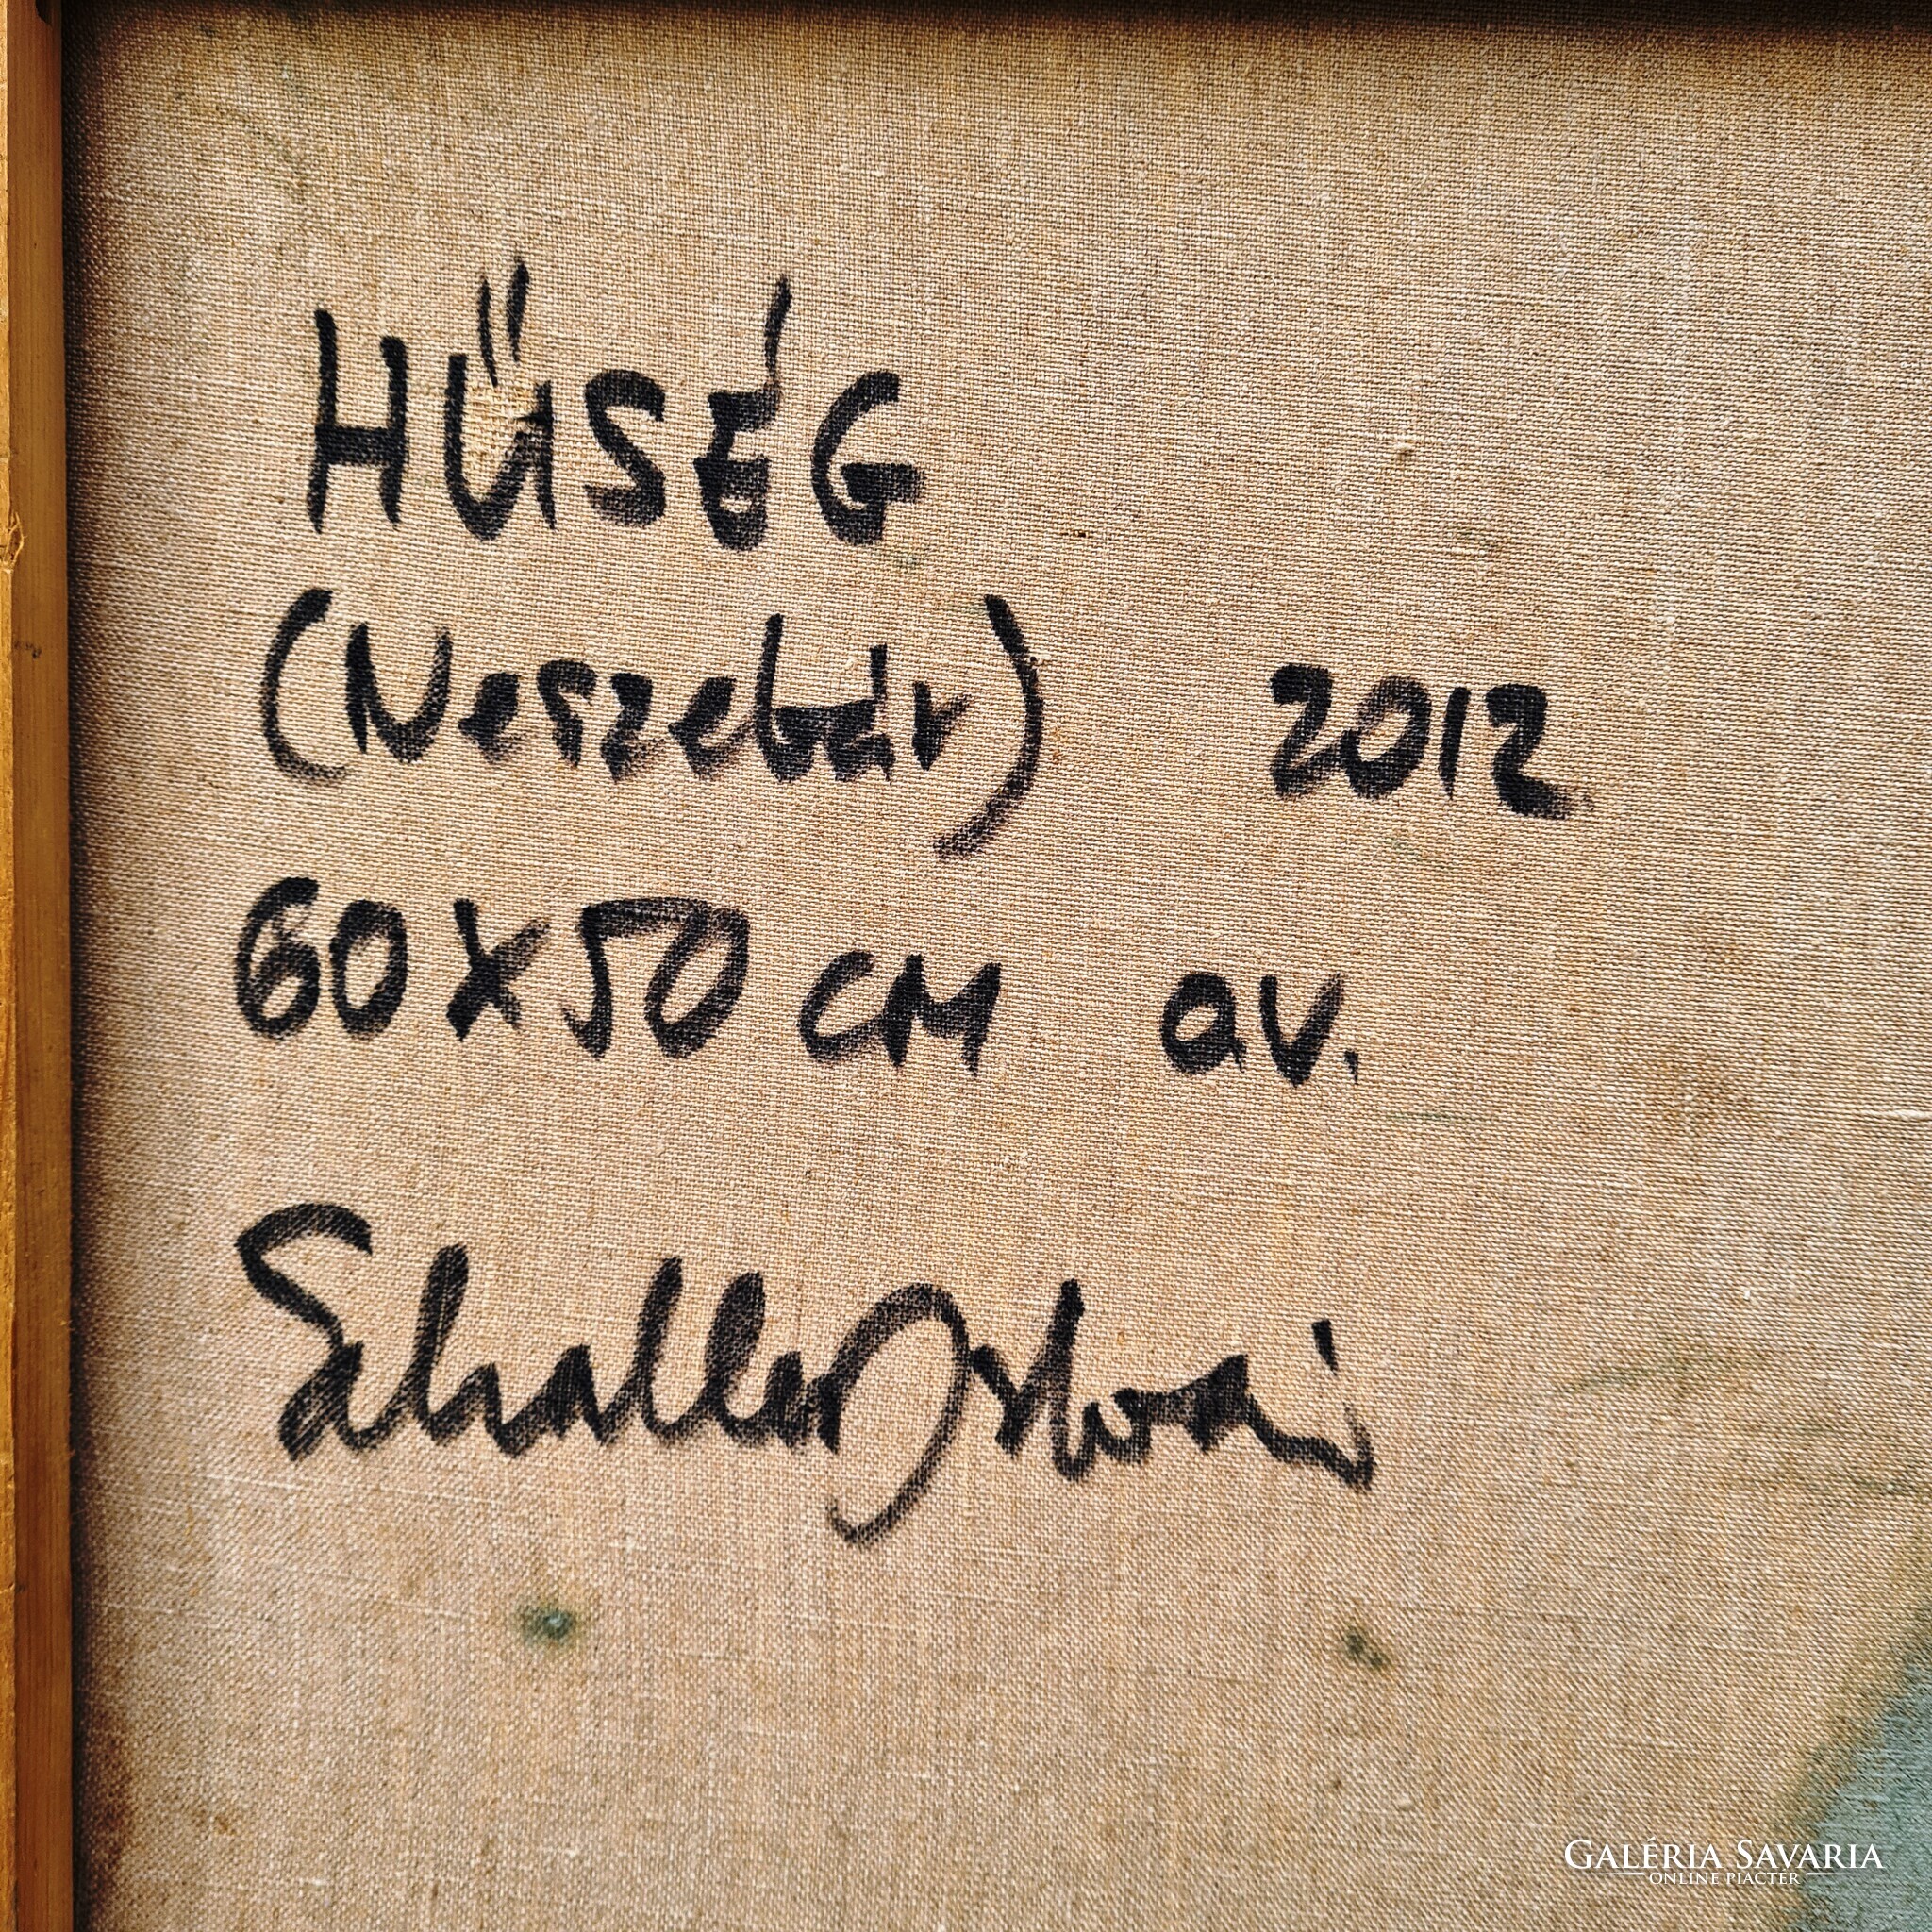 HŰSÉG
(Neszebár) 2012
60x50 CM av.
Schaller István
GALÉRIA SAVARIA
ONLINE PIACTÉR